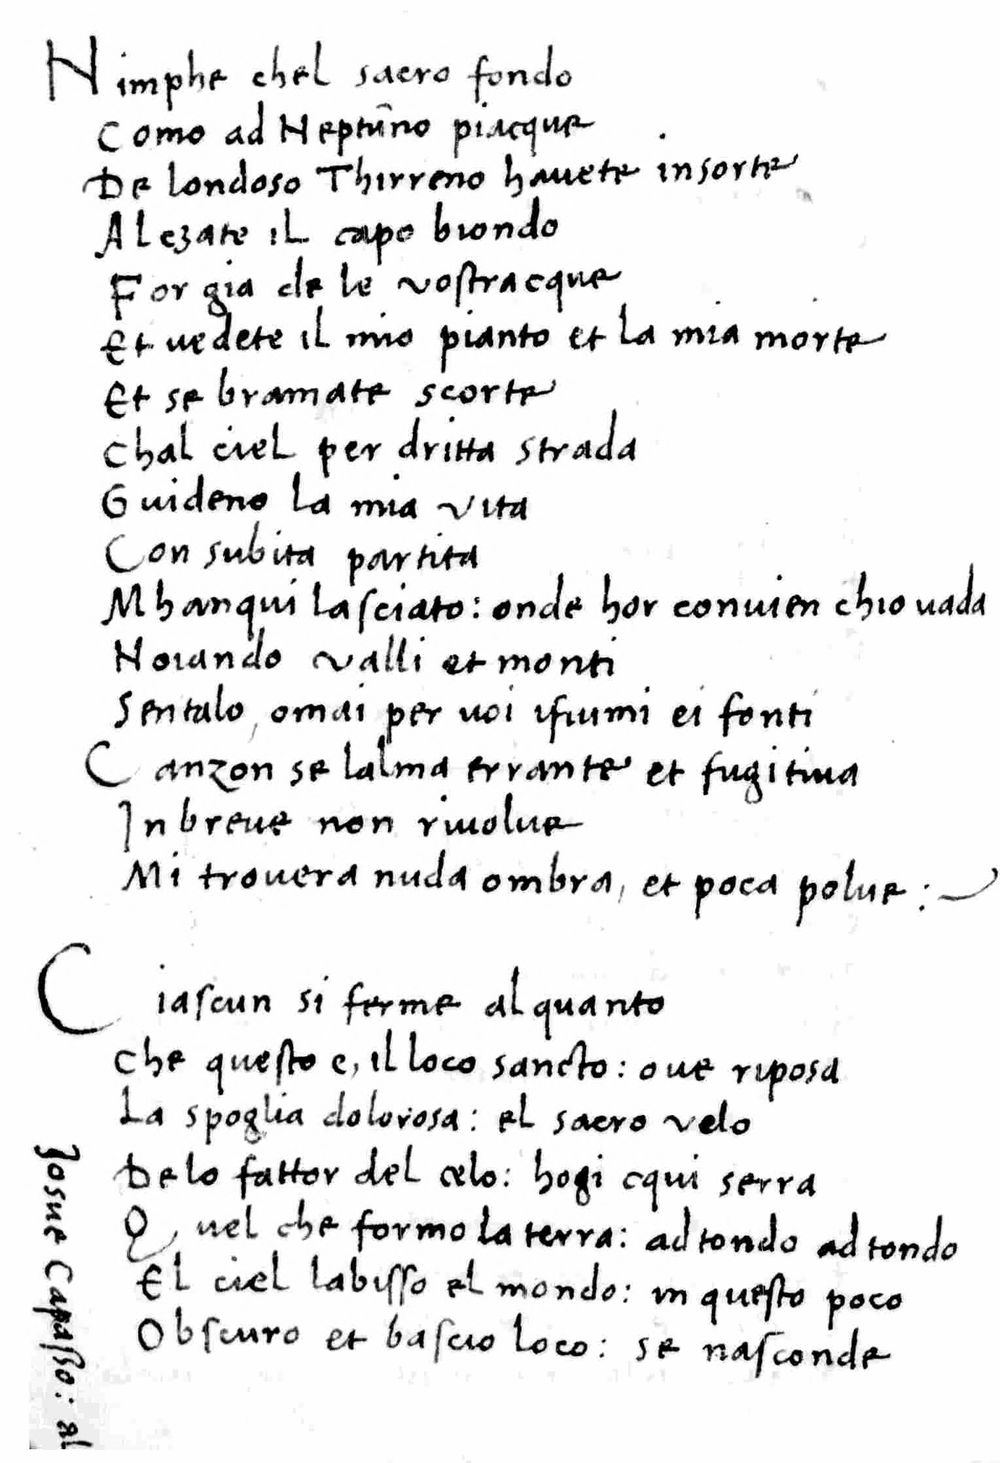 Nimphe chel sacro fondo
Como ad Neptũno piacque
De londoso Thirreno hauete insorte
Alczate il capo biondo
For gia de le vostracque
Et uedete il mio pianto et la mia morte
Et se bramate scorte
Chal ciel per dritta strada
Guideno la mia vita
Con subita partita
Mhanqui lasciato: onde hor conuien chio uada
Noiando valli et monti
Sentalo, omai per uoi ifiumi ei fonti
Canzon se lalma errante et fugitiua
In breue non riuolue
Mi trouera nuda ombra, et poca polue :
Ciascun si ferme alquanto
Che questo e, il loco sancto: oue riposa
La spoglia dolorosa: el sacro velo
Delo fattor del celo: hogi cqui serra
Quel che formo la terra: ad tondo ad tondo
El ciel labisso el mondo: in questo poco
Obscuro et bascio loco: se nasconde
Josue Capasso: al